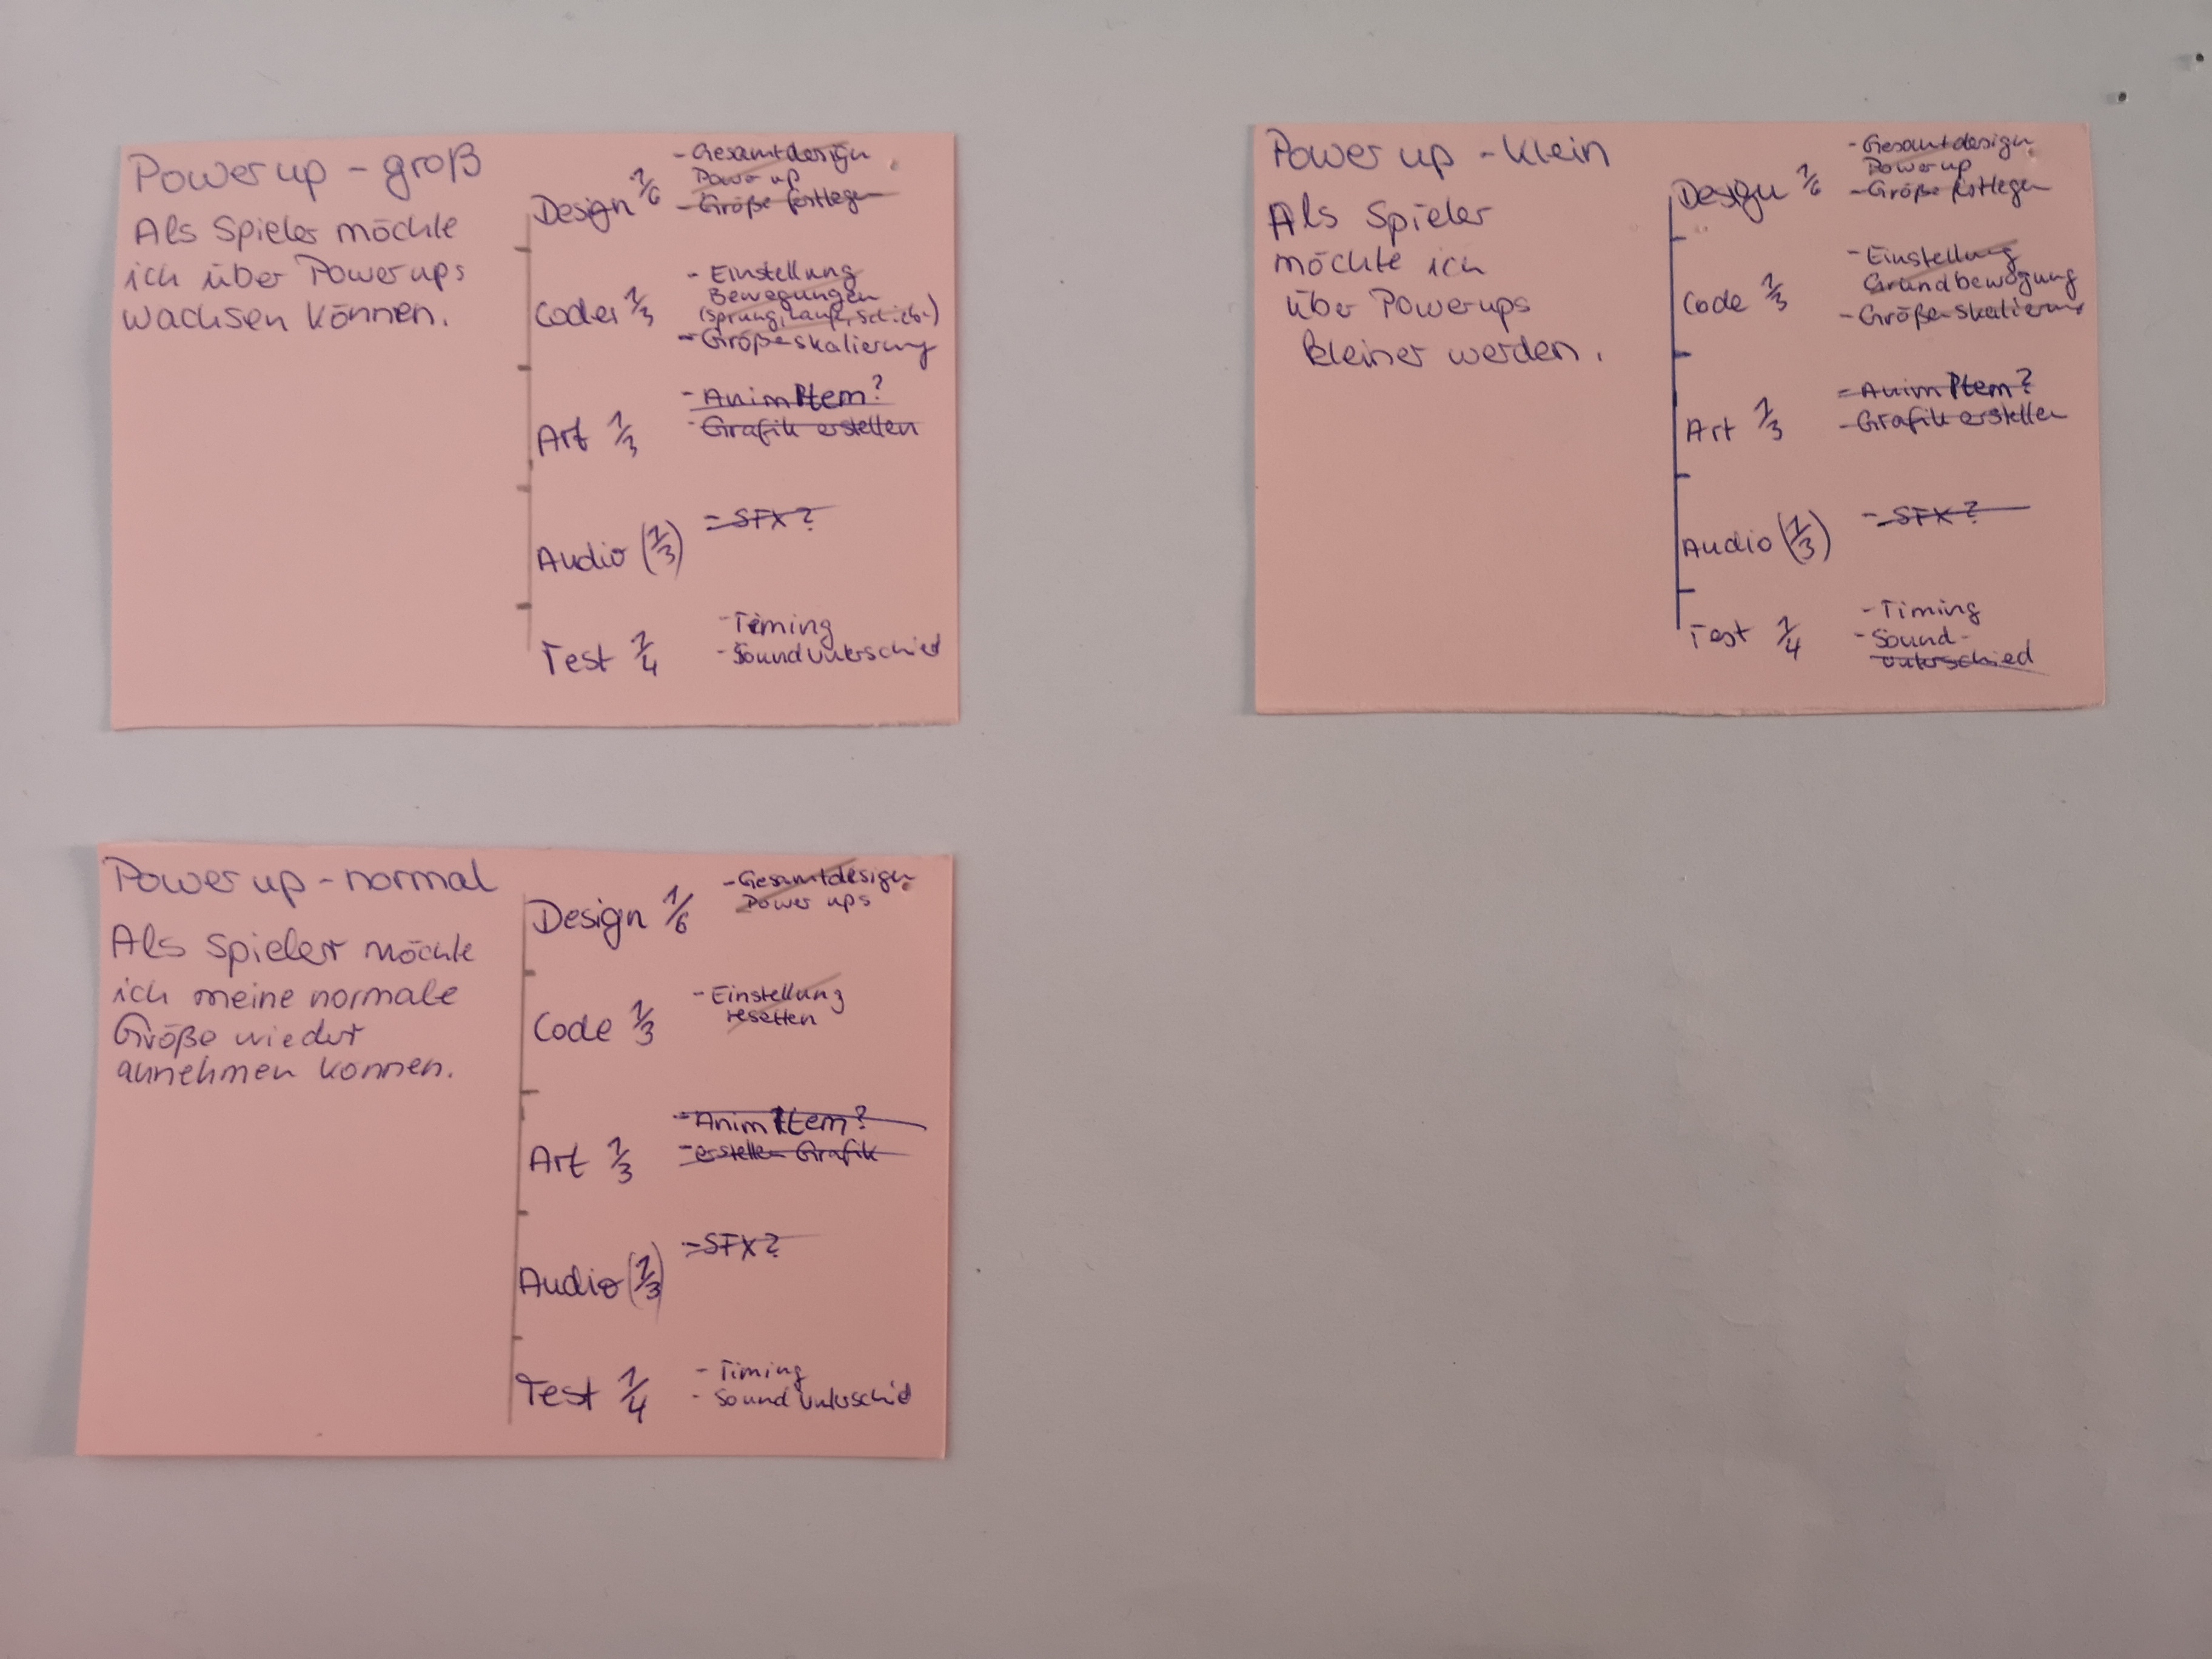 Power up - groß
Als Spieler möchte
ich über Power ups
wachsen können.
Design 1/6
- Gesamtdesign
Power up
- Größe festlegen
Code 1/3
- Einstellung
Bewegungen
(sprung, lauf, schieb-)
- Größeskalierung
Art 1/3
- Anim Item?
- Grafik erstellen
Audio (1/3)
- SFX?
Test 1/4
- Timing
- Soundunterschied
Power up - klein
Als Spieler
möchte ich
über Powerups
kleiner werden.
Design 1/6
- Gesamtdesign
Power up
- Größe festlegen
Code 1/3
- Einstellung
Grundbewegung
- Größenskalierung
Art 1/3
- Anim Item?
- Grafik erstellen
Audio (1/3)
- SFX?
Test 1/4
- Timing
- Sound-
unterschied
Power up - normal
Als Spieler möchte
ich meine normale
Größe wieder
annehmen konnen.
Design 1/6
- Gesamtdesign
Power ups
Code 1/3
- Einstellung
resetten
Art 1/3
- Anim Item?
- erstellen Grafik
Audio (1/3)
- SFX?
Test 1/4
- Timing
- Sound unterschid